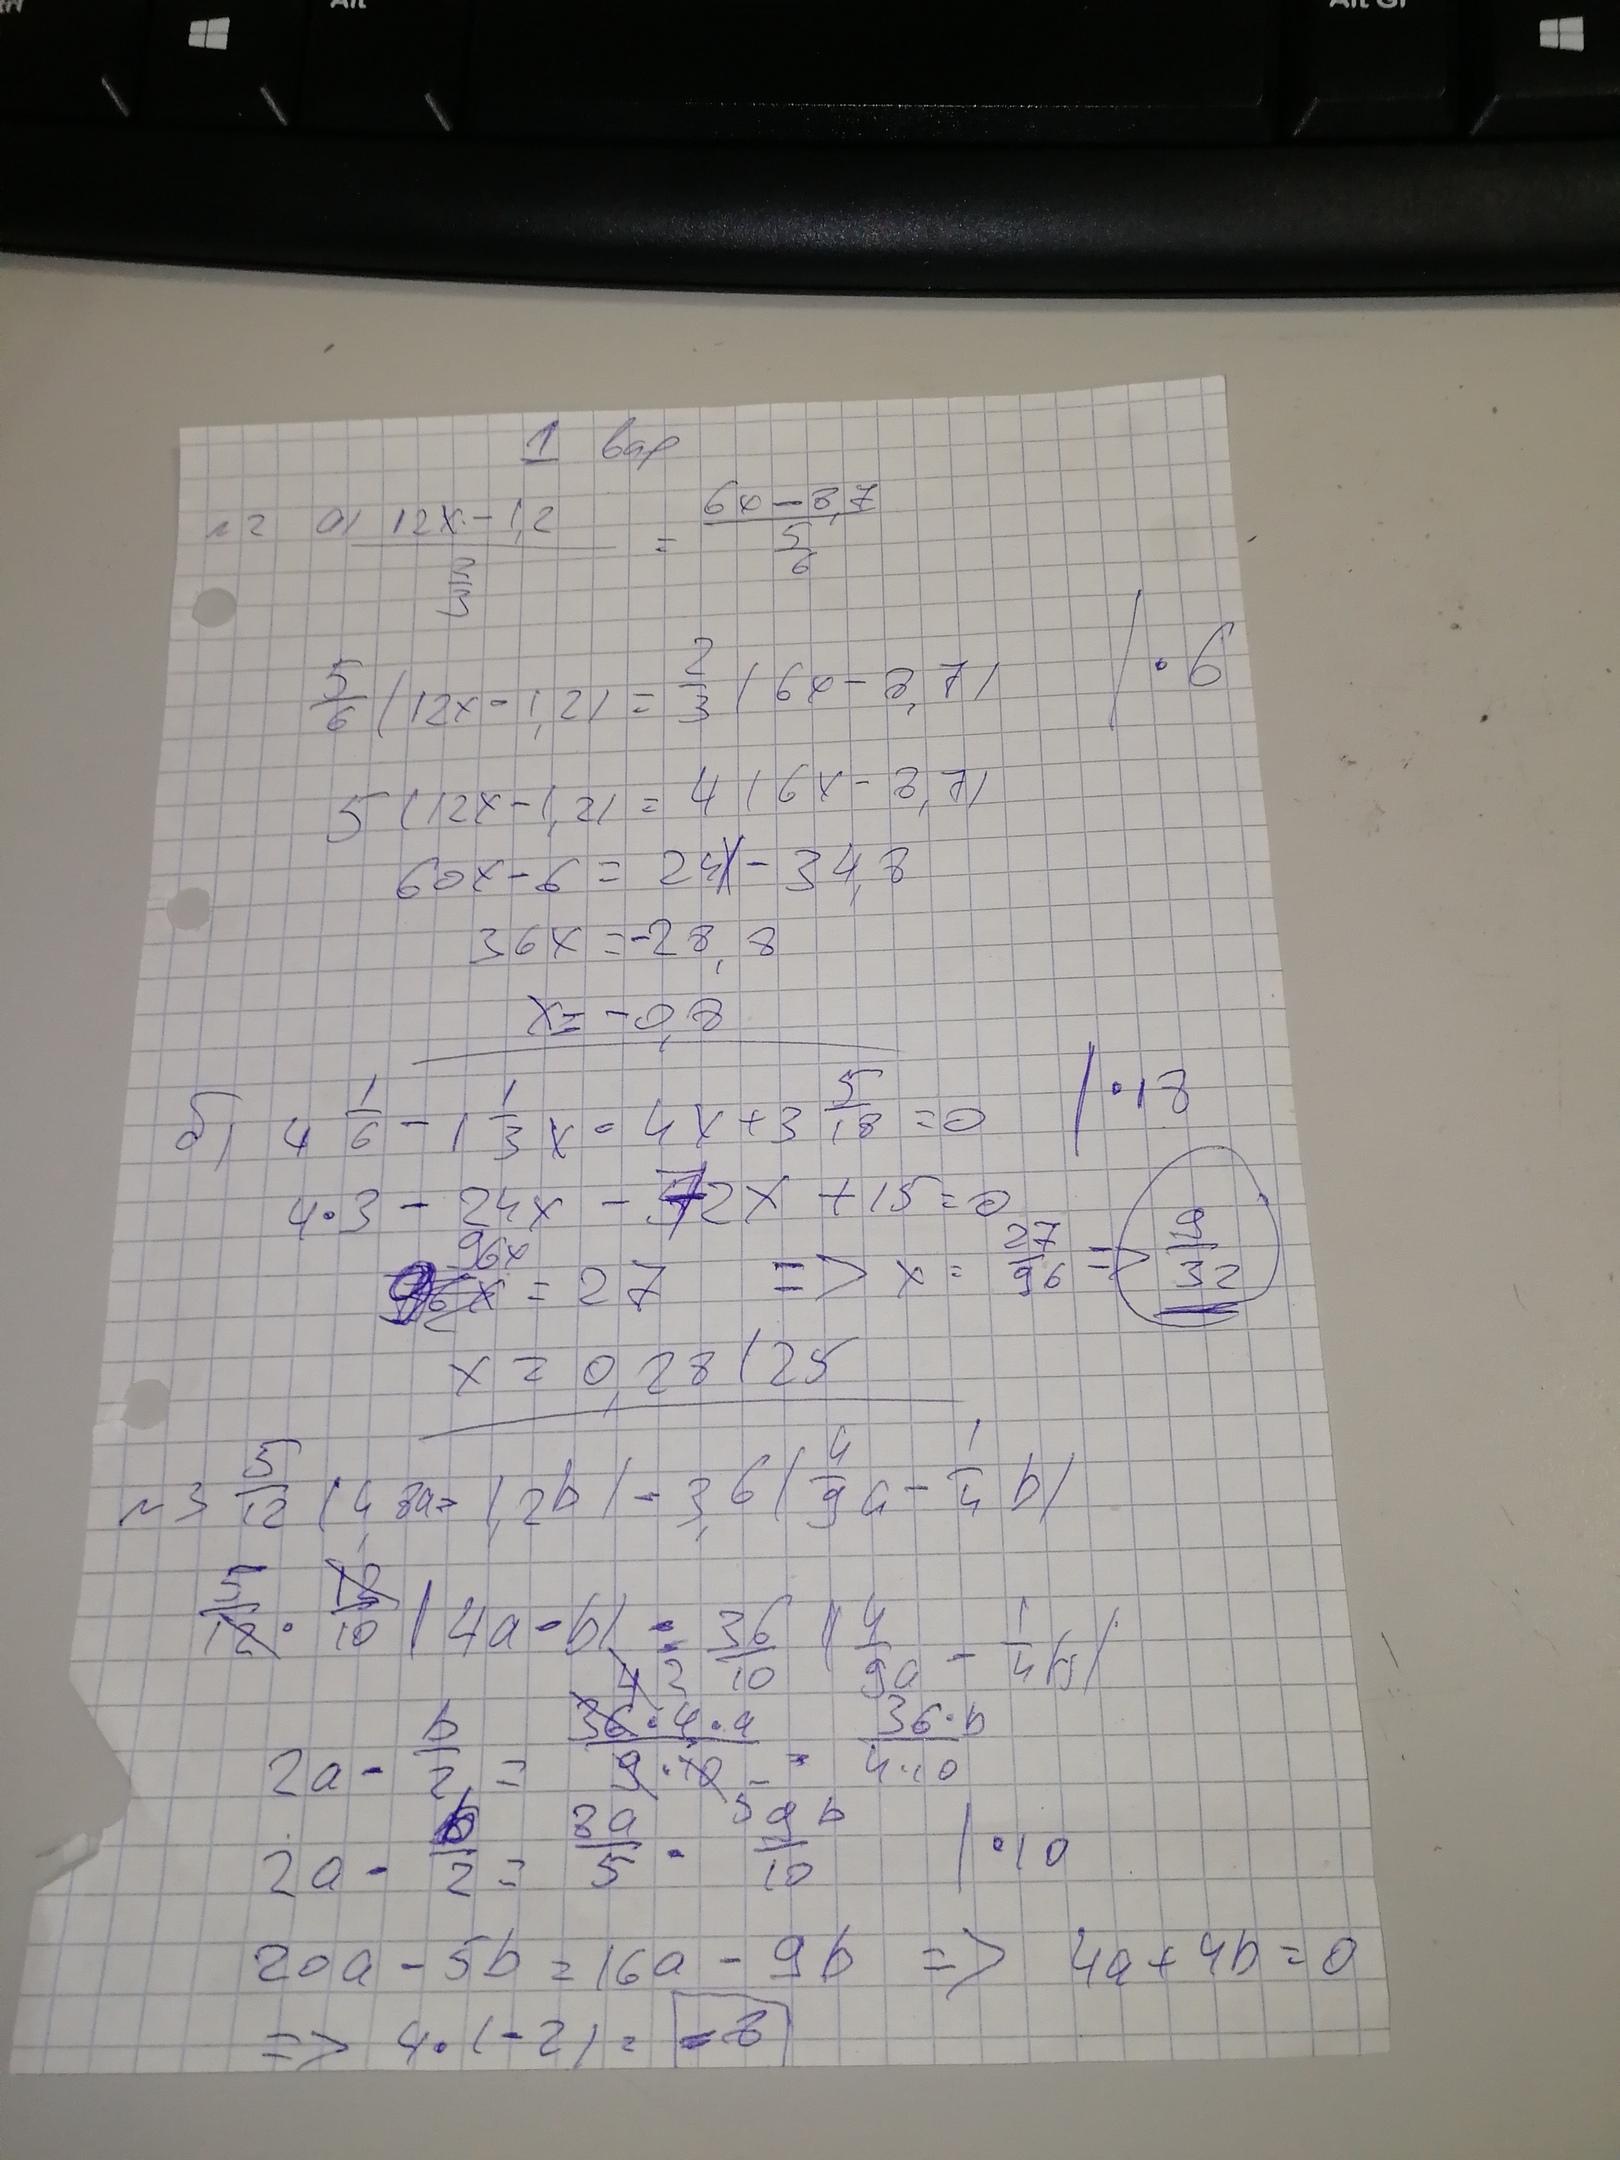 Alt
Alt Gr
1 вар
№2 а) (12x - 1,2)/(2/3) = (6x - 8,7)/(5/6)
5/6 (12x - 1,2) = 2/3 (6x - 8,7) | · 6
5 (12x - 1,2) = 4 (6x - 8,7)
60x - 6 = 24x - 34,8
36x = -28,8
x = -0,8
б) 4 1/6 - 1 1/3 x - 4x + 3 5/18 = 0 | · 18
4·3 - 24x - 72x + 15 = 0
96x = 27 => x = 27/96 => 9/32
x = 0,28125
№3 5/12 (4,8a - 1,2b) - 3,6 (4/9 a - 1/4 b)
5/12 · 12/10 (4a - b) = 36/10 (4/9a - 1/4 b)
2a - b/2 = 36·4·a/9·10 - 36·b/4·10
2a - b/2 = 8a/5 - 9b/10 | · 10
20a - 5b = 16a - 9b => 4a + 4b = 0
=> 4·(-2) = -8